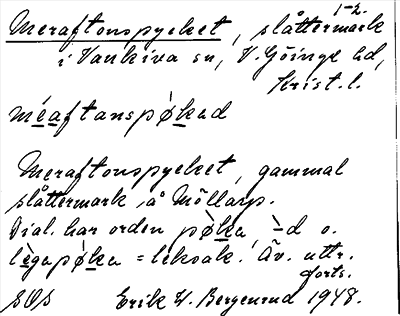 1-2.
Meraftonspyeket, slåttermark
i Vankiva sn, V. Göinge hd,
Krist. l.
méaftanspøkad
Meraftonspyeket, gammal
slåttermark å Möllarp.
Dial. har orden pøka, -d o.
lègapøka = leksak. Äv. uttr.
forts.
SOS Erik W. Bergenrud 1948.